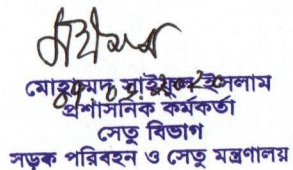 মোহাম্মদ সাইফুল ইসলাম
প্রশাসনিক কর্মকর্তা
সেতু বিভাগ
সড়ক পরিবহন ও সেতু মন্ত্রণালয়